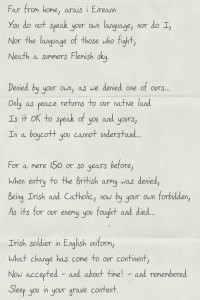 Far from home, arais i Eireann
You do not speak your own language, nor do I,
Nor the language of those who fight,
Neath a summers Flemish sky.
Denied by your own, as we denied one of ours...
Only as peace returns to our native land
Is it OK to speak of you and yours,
In a boycott you cannot understand...
For a mere 150 or so years before,
When entry to the British army was denied,
Being Irish and Catholic, now by your own forbidden,
As its for our enemy you fought and died...
Irish soldier in English uniform,
What change has come to our continent,
Now accepted - and about time! - and remembered
Sleep you in your grave content.